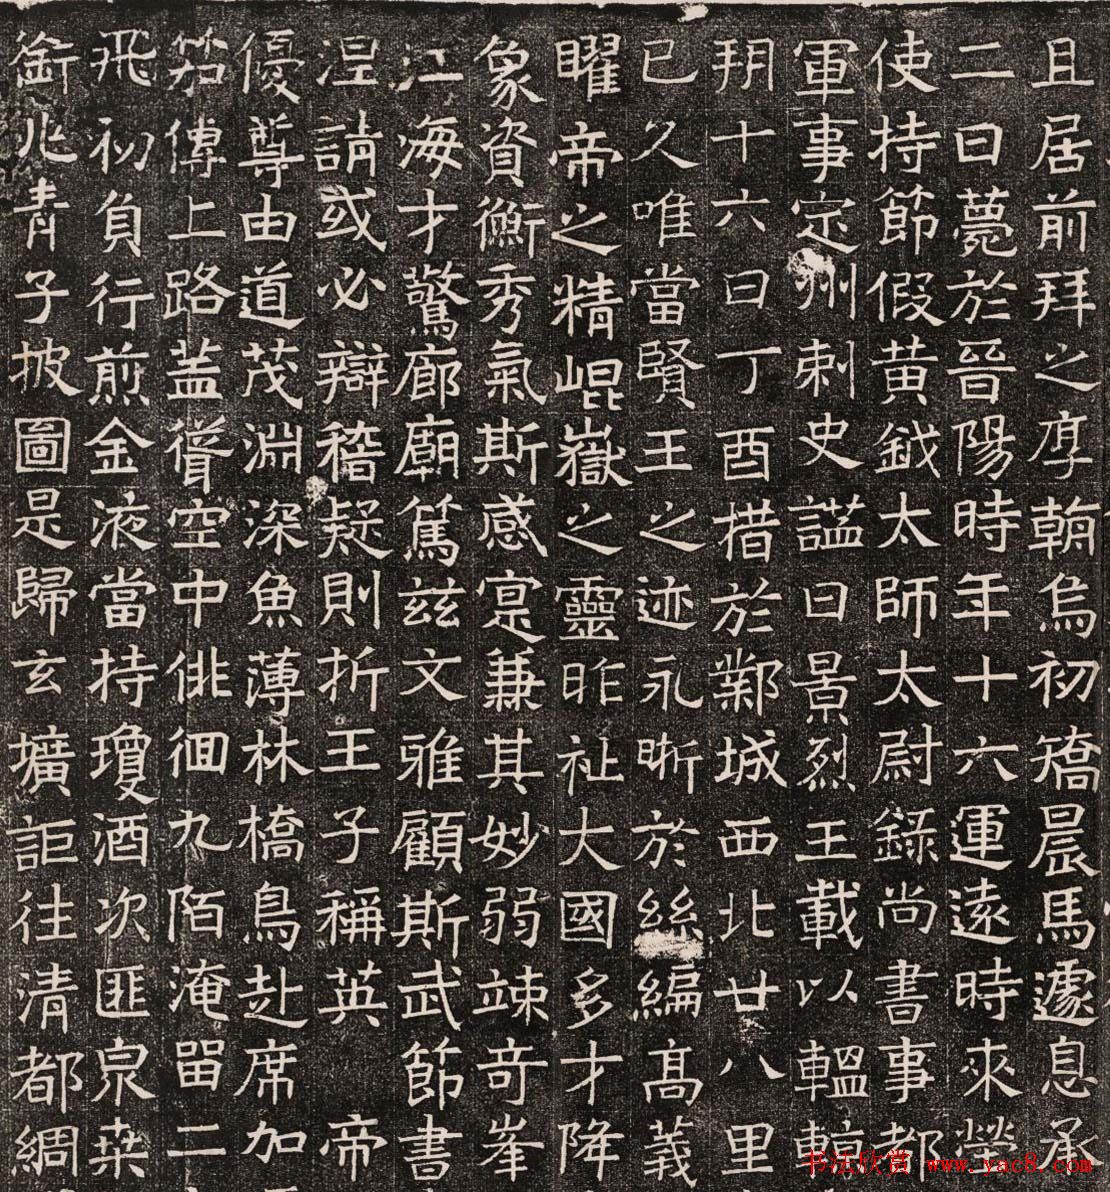 且居前拜之厚翰烏初矯晨馬遽息承
二日薨於晉陽時年十六運遠時來塋
使持節假黃鉞太師太尉錄尚書事都
軍事定州刺史謚曰景烈王載以轀輬
朔十六日丁酉措於鄴城西北廿八里
已久唯當賢王之迹永晰於絲編高義
曜帝之精崐嶽之靈昨祉大國多才降
象資衡秀氣斯感寔兼其妙弱竦奇峯
江海才驚廊廟篤茲文雅顧斯武節書
涅請或必辯稽疑則折王子稱英 帝
優尊由道茂淵深魚薄林橋鳥赴席加
笳傳上路蓋聳空中徘徊九陌淹留二
飛初負行煎金液當持瓊酒次匪泉桒
銜兆青子披圖是歸玄壙詎往清都綢
书法欣赏 www.yac8.com